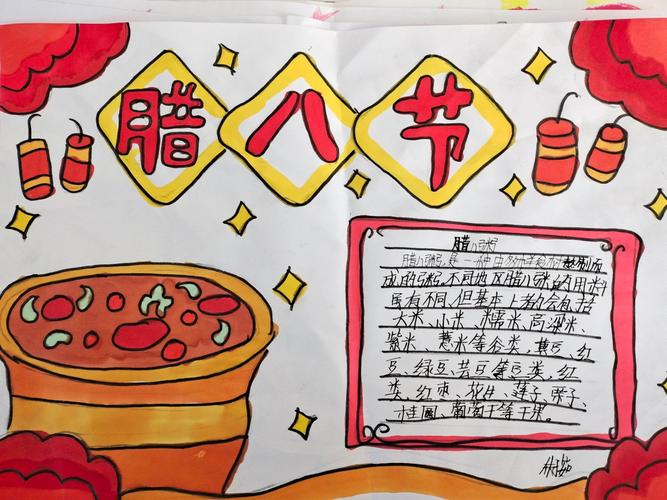 腊八节
腊八粥
腊八粥是一种由多样食材熬制而
成的粥,不同地区腊八粥的用料
虽有不同,但基本上都会包括
大米、小米、糯米、高粱米、
紫米、薏米等谷类,黄豆、红
豆、绿豆、芸豆等豆类,红
类,红枣、花生、莲子、栗子、
桂圆、葡萄干等干果。